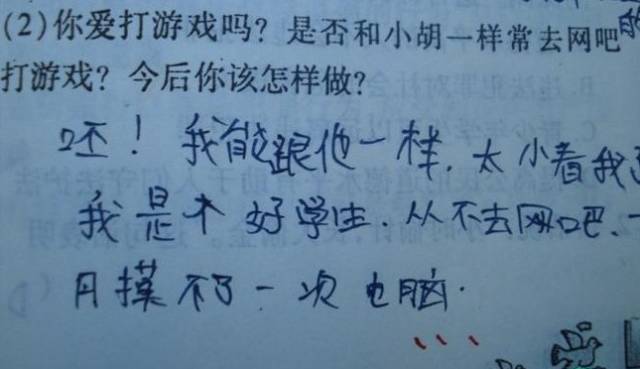 (2)你爱打游戏吗？是否和小胡一样常去网吧
打游戏？今后你该怎样做？
呸！我能跟他一样．太小看我
我是个好学生．从不去网吧．一
月摸不了一次电脑．